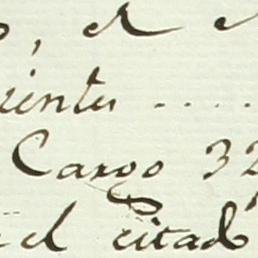 , el
iento ....
Cargo 32
el citad